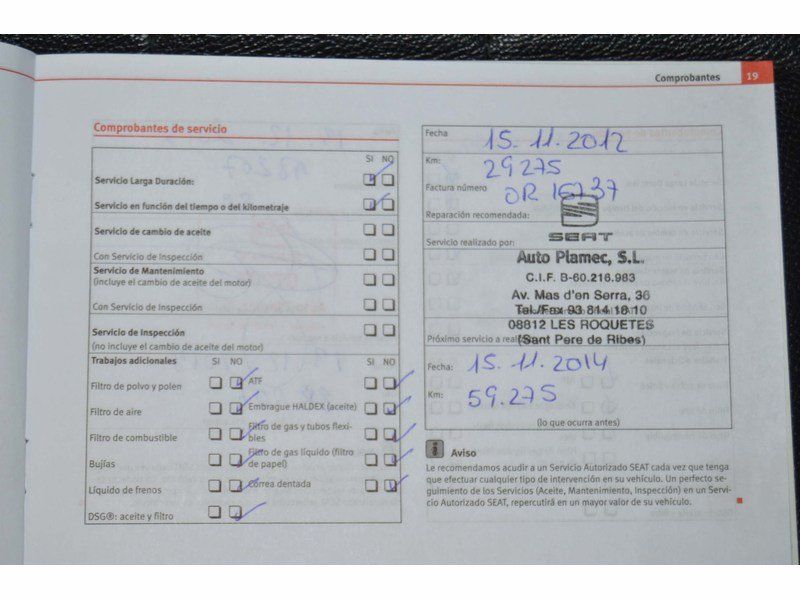 Comprobantes 19
Comprobantes de servicio
SI NO
Servicio Larga Duración:
Servicio en función del tiempo o del kilometraje
Servicio de cambio de aceite
Con Servicio de Inspección
Servicio de Mantenimiento
(incluye el cambio de aceite del motor)
Con Servicio de Inspección
Servicio de Inspección
(no incluye el cambio de aceite del motor)
Trabajos adicionales SI NO SI NO
Filtro de polvo y polen
Filtro de aire
Filtro de combustible
Bujías
Líquido de frenos
DSG®: aceite y filtro
ATF
Embrague HALDEX (aceite)
Filtro de gas y tubos flexi-
bles
Filtro de gas líquido (filtro
de papel)
Correa dentada
Fecha 15.11.2012
Km: 29275
Factura número OR 16737
Reparación recomendada:
SEAT
Servicio realizado por:
Auto Plamec, S.L.
C.I.F. B-60.216.983
Av. Mas d'en Serra, 36
Tel./Fax 93 814 18 10
08812 LES ROQUETES
(Sant Pere de Ribes)
Fecha: 15.11.2014
Km: 59.275
(lo que ocurra antes)
Aviso
Le recomendamos acudir a un Servicio Autorizado SEAT cada vez que tenga
que efectuar cualquier tipo de intervención en su vehículo. Un perfecto se-
guimiento de los Servicios (Aceite, Mantenimiento, Inspección) en un Servi-
cio Autorizado SEAT, repercutirá en un mayor valor de su vehículo.